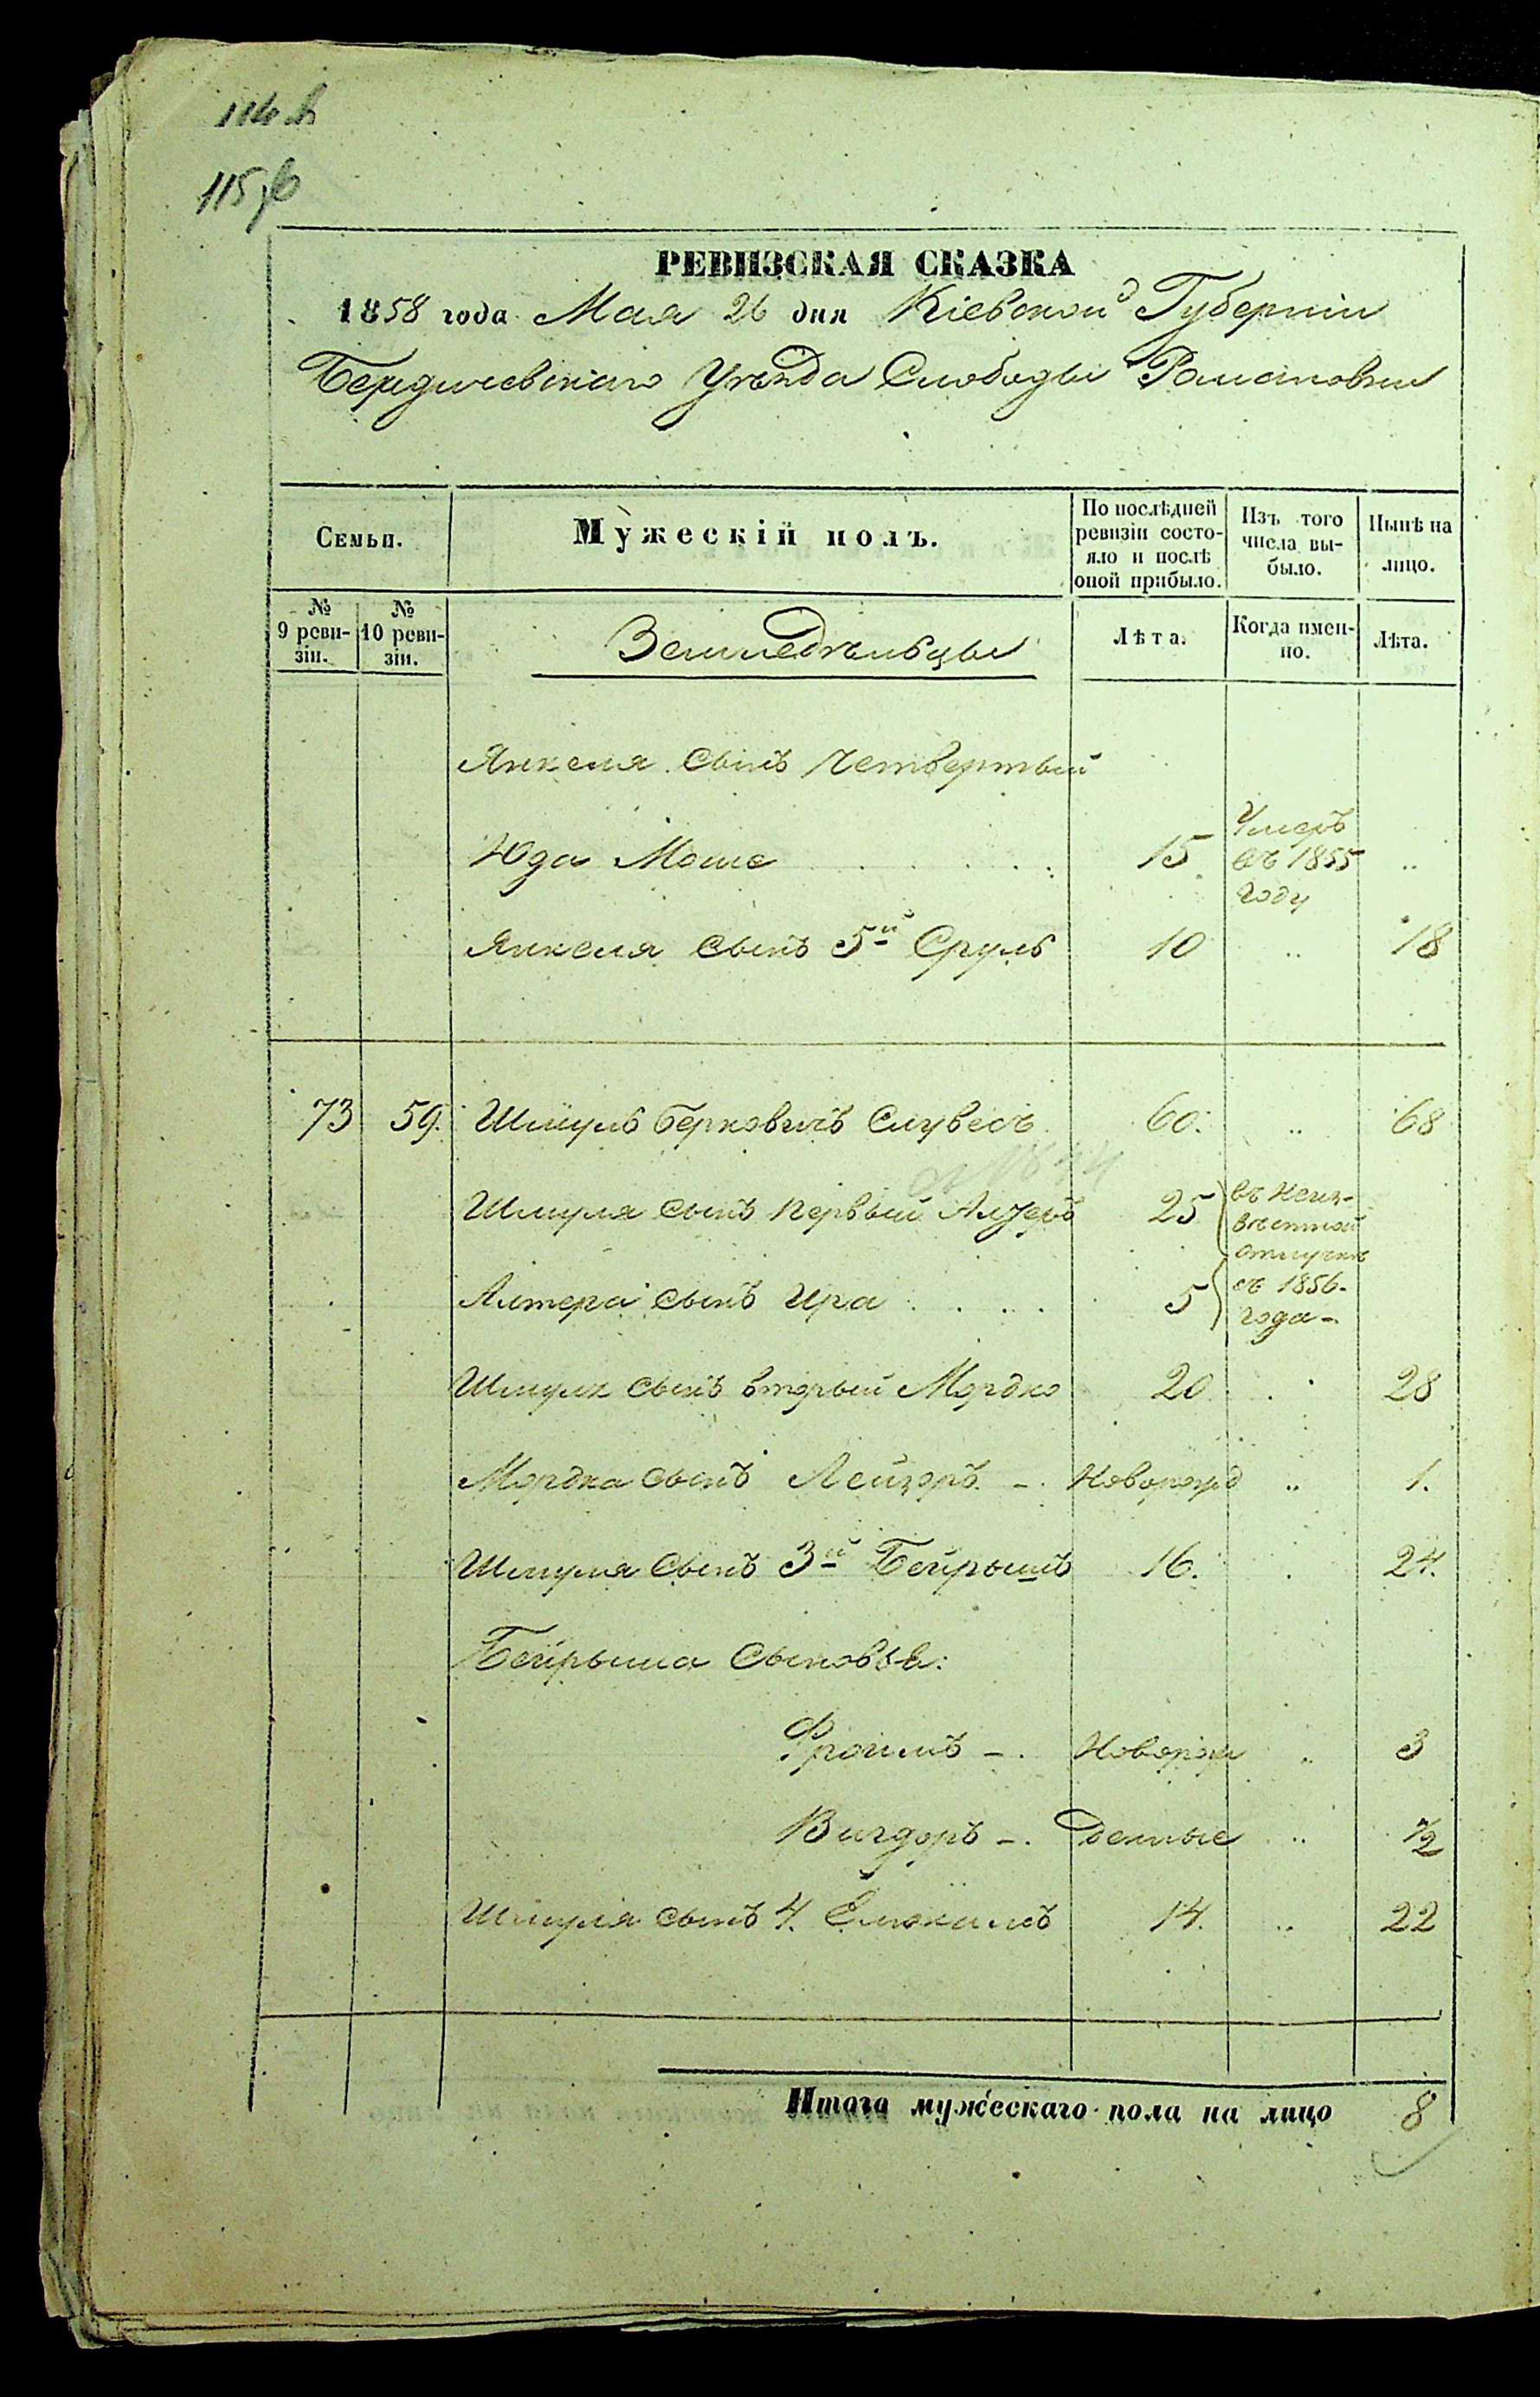 115
РЕВИЗСКАЯ СКАЗКА
1858 года Мая 26 дня Кіевской Губерніи
Бердичевскаго Уѣзда Слободы Романовки
Семьи.
Мужескій полъ.
По послѣдней ревизіи состо-
яло и послѣ оной прибыло.
Изъ того числа вы-
было.
Нынѣ на лицо.
№ 9 реви-
зіи.
№ 10 реви-
зіи.
Земледѣльцы
Лѣта.
Когда имен-
но.
Лѣта.
Янкеля сынъ четвертый
Юда Моше 15 Умеръ въ 1855 году ..
Янкеля сынъ 5й Сруль 10 .. 18
73 59. Шмуль Берковичъ 60. .. 68
Шмуля сынъ первый 25 въ неиз-
вѣстной
отлучкѣ
Алтера сынъ Ира 5 съ 1856.
года
Шмуля сынъ вторый Мордко 20 . 28
Мордка сынъ Лейзоръ - Новорожд .. 1.
Шмуля сынъ 3й Бейрышъ 16. . 24.
Бейрыша сыновья:
Фроимъ -. Новорож .. 3
Вигдоръ -. денные .. 1/2
Шмуля сынъ 4. Елюкимъ 14. .. 22
Итого мужескаго пола на лицо 8